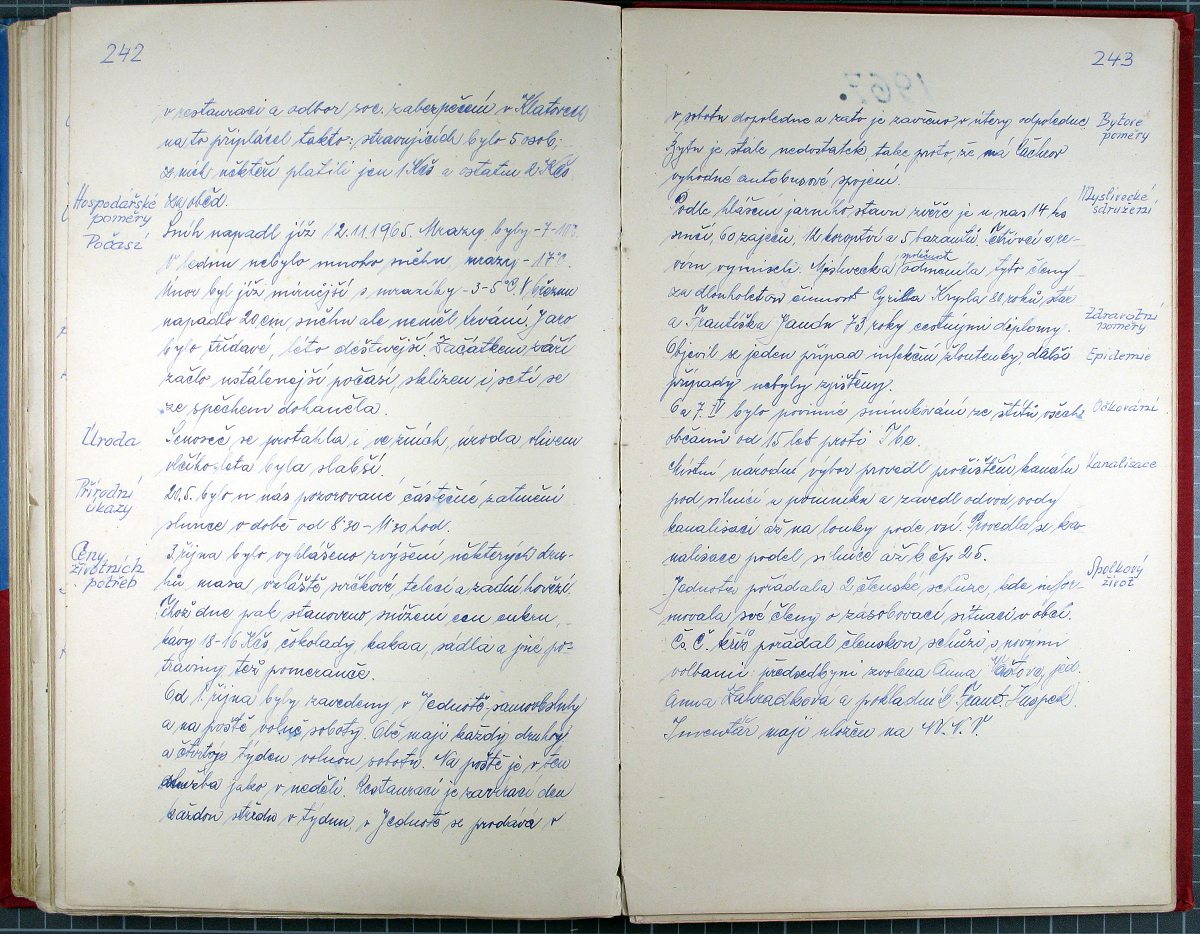 242
v restauraci a odbor soc. zabezpečení v Klatovech
na to připlácel takto: stravujících bylo 5 osob,
z nich někteří platili jen 1 Kčs a ostatní 2 Kčs
za oběd.
Hospodářské
poměry
Počasí
Sníh napadl již 12.11.1965. Mrazy byly -7-10°C.
V lednu nebylo mnoho sněhu, mrazy - 17°C.
Únor byl již mírnější s mrazíky -3-5°C. V březnu
napadlo 20 cm sněhu ale neměl trvání. Jaro
bylo střídavé, léto deštivější. Začátkem září
začlo ustálenější počasí sklizen i setí se
ze spěchem doháněla.
Úroda
Senoseč se protáhla i ve žních, úroda vlivem
vlčího léta byla slabší.
Přírodní
úkazy
20.5. bylo u nás pozorované částečné zatmění
slunce v době od 8:30 - 11:30 hod.
Ceny
životních
potřeb
3. října bylo vyhlášeno zvýšení některých dru-
hů masa vzláště svíčkové, telecí a zadní hovězí.
Téhož dne pak stanoveno snížení cen cukru,
kávy 18-16 Kčs, čokolády, kakaa, sádla a jiné po-
traviny též pomeranče.
Od 1. října byly zavedeny v Jednotě-samoobsluhy
a na poště volné soboty. Obě mají každý druhý
a čtvrtý týden volnou sobotu. Na poště je v ten
služba jako v neděli. Restaurací je zavírací den
každou středu v týdnu, v Jednotě se prodává v
243
v sobotu dopoledne a zato je zavřeno v úterý odpoledne.
Bytové
poměry
Bytů je stále nedostatek také proto, že má Čachrov
výhodné autobusové spojení.
Myslivecké
sdružení
Podle hlášení jarního stavu zvěře je u nás 14 ks
srnčí, 60 zajíců, 12 koroptví a 5 bažantů. Tetřevi a je-
řábi vymizeli. Myslivecká společnost odměnila tyto členy
za dlouholetou činnost Cyrila Krysla 80 roků stár
a Františka Jandu 73 roky čestnými diplomy.
Zdravotní
poměry
Epidemie
Objevil se jeden případ infekční žloutenky, další
případy nebyly zjištěny.
Očkování
6 a 7. IV bylo povinné snímkování ze štítů všech
občanů od 15 let proti Tbc.
Kanalisace
Místní národní výbor provedl pročištění kanálu
pod silnicí u pomníku a zavedl odvod vody
kanalisací až na louky pode vsí. Provedla se ka-
nalisace podél silnice až k čp. 25.
Spolkový
život
Jednota pořádala 2 členské schůze, kde infor-
movala své členy o zásobovací situaci v obci.
Čs. Č. kříž pořádal členskou schůzi s novými
volbami: předsedkyní zvolena Anna, jed.
Anna Zahrádková a pokladník Frant.
Inventář mají uložen na N.V.